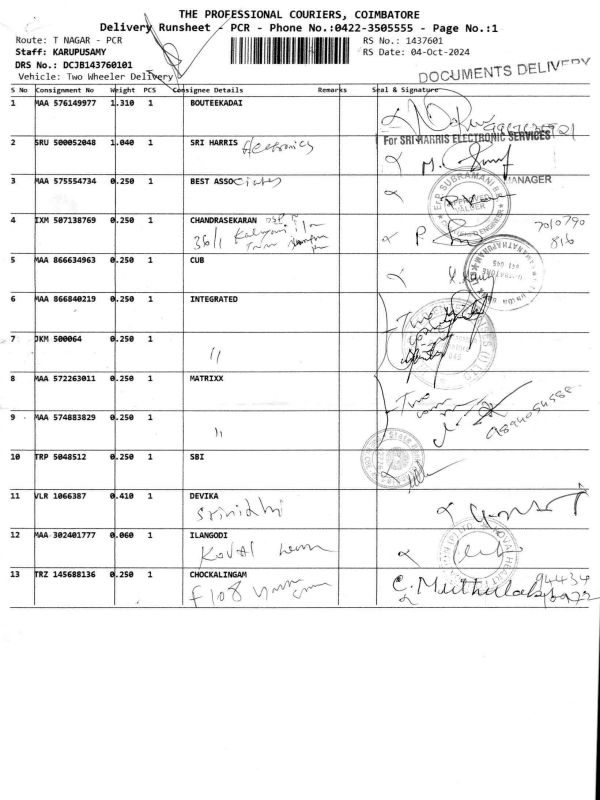 THE PROFESSIONAL COURIERS, COIMBATORE
Delivery Runsheet - PCR - Phone No.:0422-3505555 - Page No.:1
Route: T NAGAR - PCR RS No.: 1437601
Staff: KARUPUSAMY RS Date: 04-Oct-2024
DRS No.: DCJB143760101
Vehicle: Two Wheeler Delivery
DOCUMENTS DELIVERY
S No Consignment No Weight PCS Consignee Details Remarks Seal & Signature
1 MAA 576149977 1.310 1 BOUTEEKADAI
For SRI HARRIS ELECTRONIC SERVICES
2 SRU 500052048 1.040 1 SRI HARRIS Electronics
MANAGER
3 MAA 575554734 0.250 1 BEST ASSOCiates
4 IXM 507138769 0.250 1 CHANDRASEKARAN
36/1 Kalyani
70/0790
816
5 MAA 866634963 0.250 1 CUB
6 MAA 866840219 0.250 1 INTEGRATED
Two
7 JKM 500064 0.250 1
"
8 MAA 572263011 0.250 1 MATRIXX
Two
9894054588
9 MAA 574883829 0.250 1
"
10 TRP 5048512 0.250 1 SBI
11 VLR 1066387 0.410 1 DEVIKA
Srinidhi
12 MAA 302401777 0.060 1 ILANGODI
Koval
13 TRZ 145688136 0.250 1 CHOCKALINGAM
F108
C. Muthulakshmi
94434